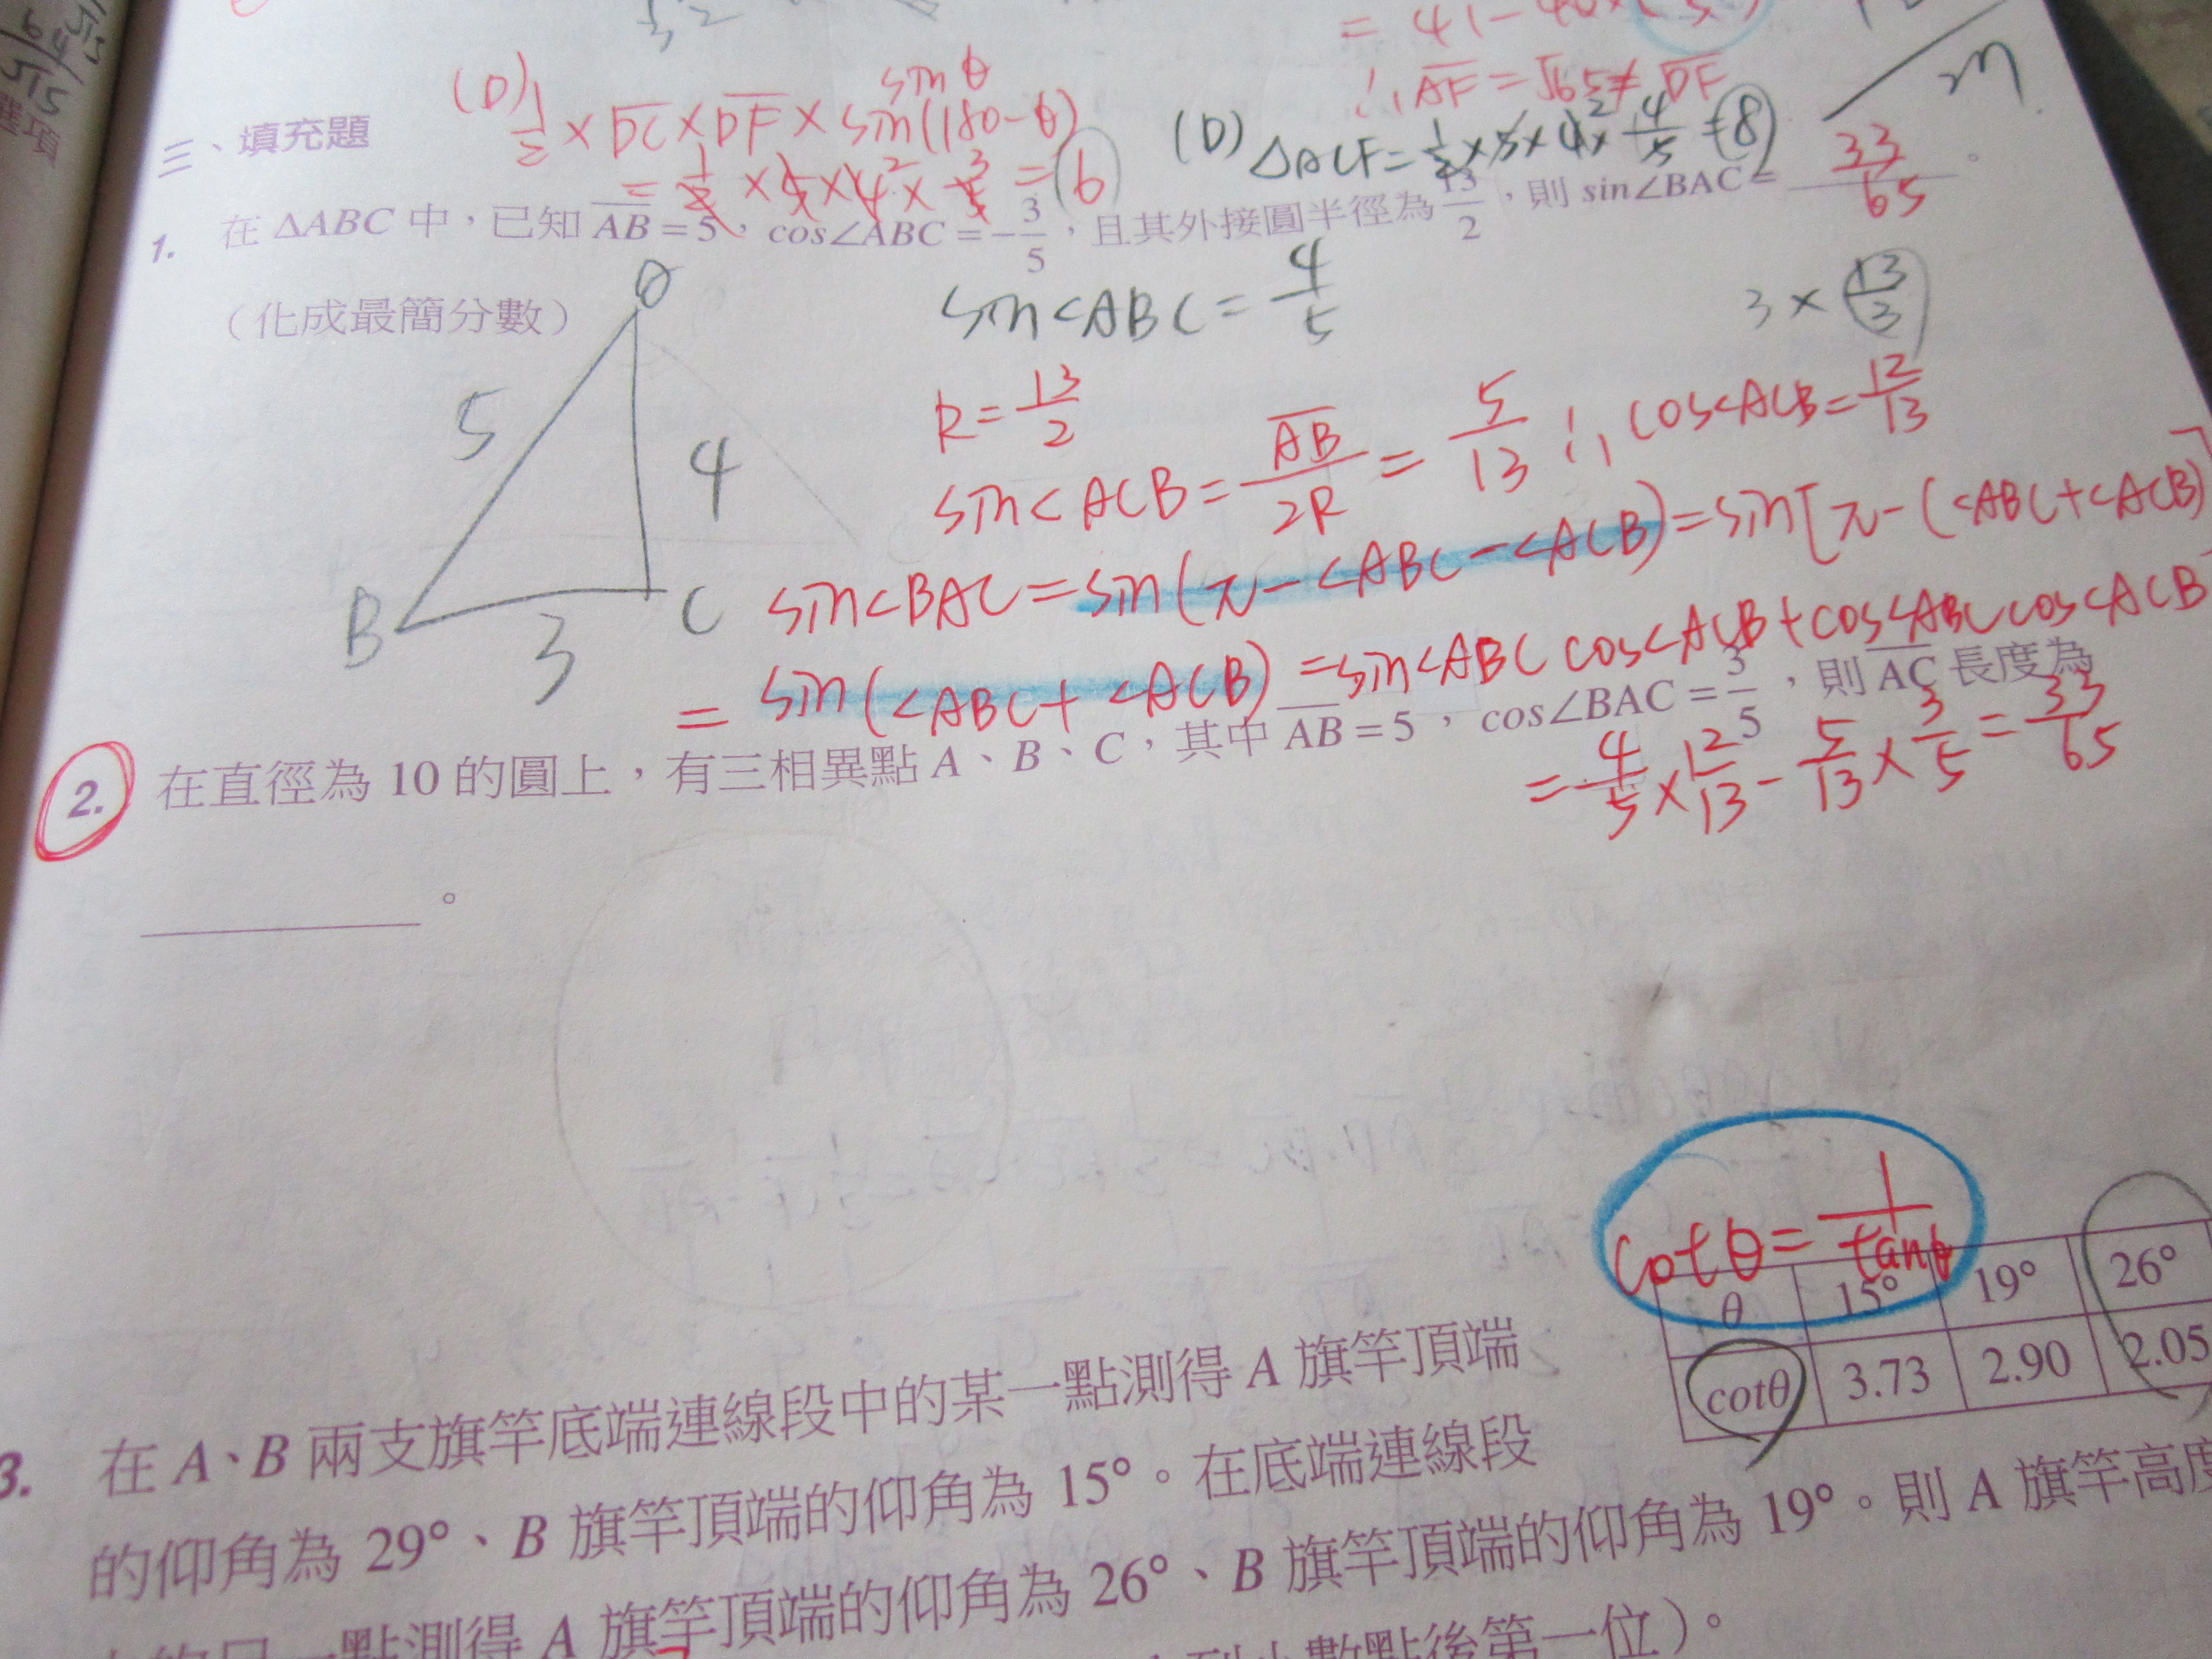 = 41 - 40 ×
∴ AF = √65 ≠ DF
(D) 1/2 × DC × DF × sin(180-θ)
sinθ
= 1/2 × 5 × 4² × 3/5 = 6
(D) △ACF = 1/2 × 5 × 4² × 4/5 = 8
m
三、填充題
1. 在 ΔABC 中，已知 AB = 5，cos∠ABC = -3/5，且其外接圓半徑為 13/2，則 sin∠BAC = 33/65 。
（化成最簡分數）
sin∠ABC = 4/5
3 × 13/3
5
4
B
3
C
R = 13/2
sin∠ACB = AB/2R = 5/13 ∴ cos∠ACB = 12/13
sin∠BAC = sin(π - ∠ABC - ∠ACB) = sin[π - (∠ABC + ∠ACB)]
= sin(∠ABC + ∠ACB) = sin∠ABC cos∠ACB + cos∠ABC cos∠ACB
= 4/5 × 12/13 - 5/13 × 3/5 = 33/65
2. 在直徑為 10 的圓上，有三相異點 A、B、C，其中 AB = 5，cos∠BAC = 3/5，則 AC 長度為
。
cotθ = 1/tanθ
θ 15° 19° 26°
cotθ 3.73 2.90 2.05
3. 在 A、B 兩支旗竿底端連線段中的某一點測得 A 旗竿頂端
的仰角為 29°、B 旗竿頂端的仰角為 15°。在底端連線段
一點測得 A 旗竿頂端的仰角為 26°、B 旗竿頂端的仰角為 19°。則 A 旗竿高度
到小數點後第一位）。